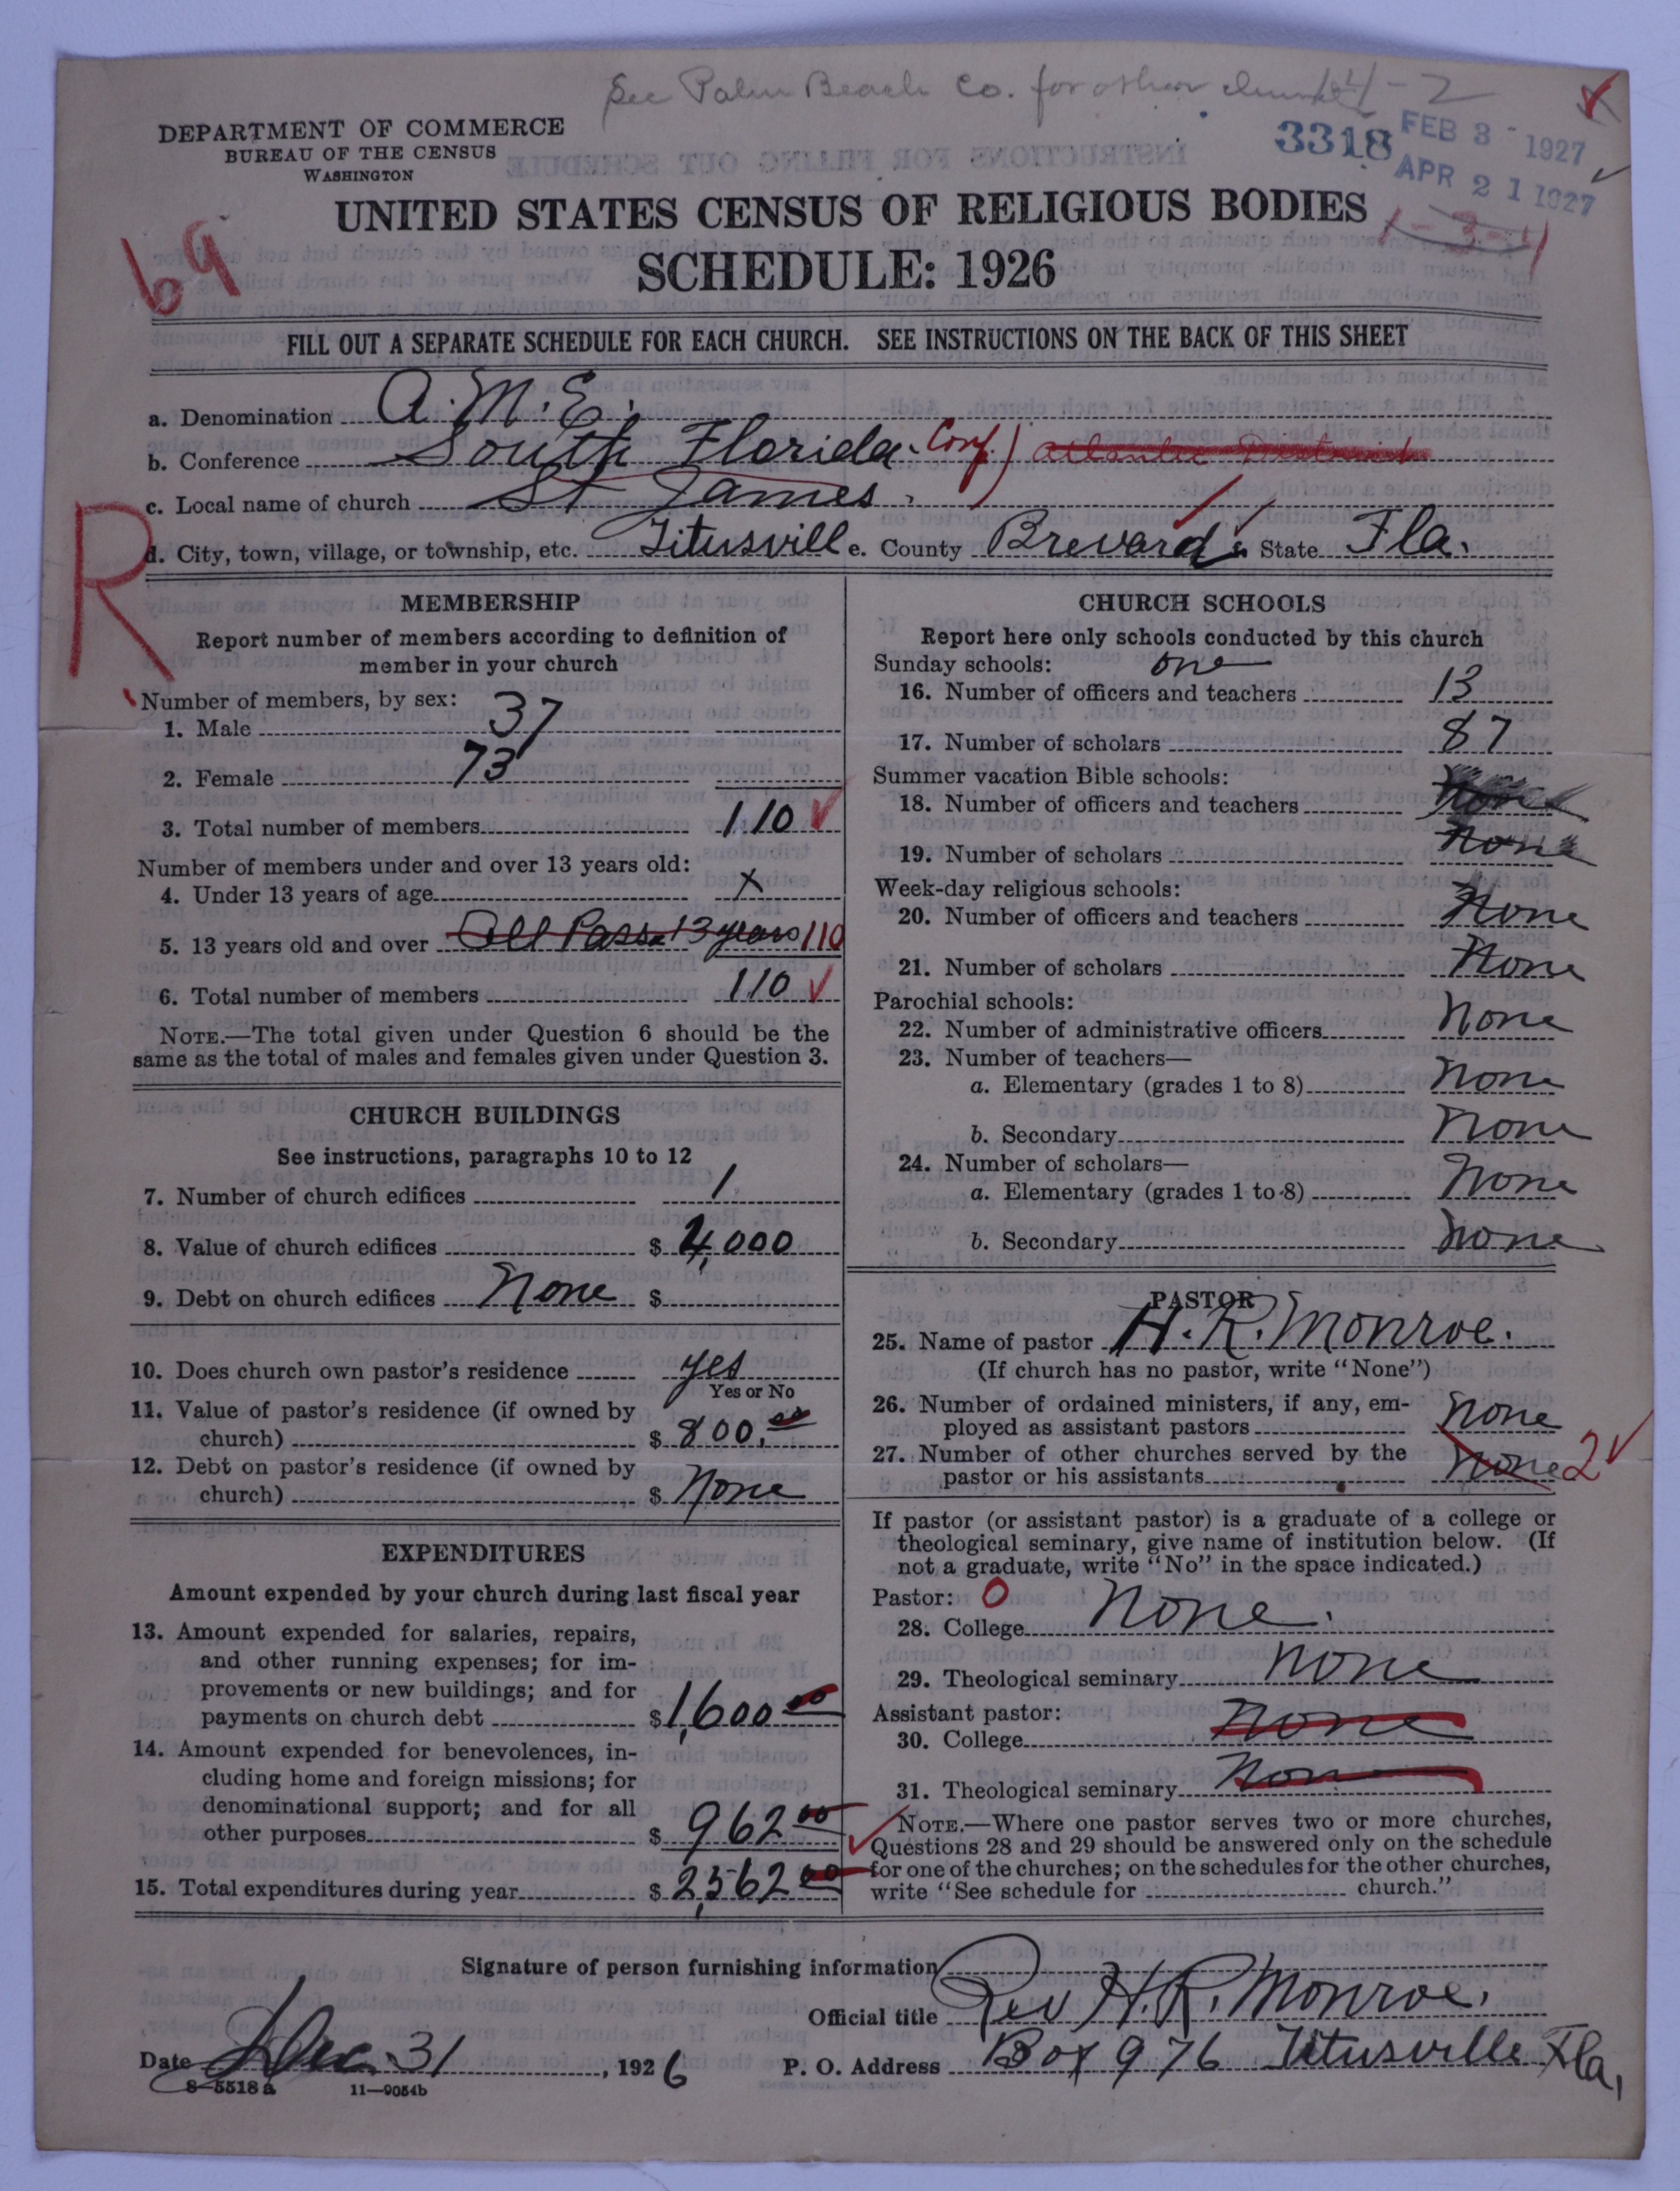 See Palm Beach Co. for other 14-2
DEPARTMENT OF COMMERCE
BUREAU OF THE CENSUS
WASHINGTON
3318
FEB 3 - 1927
APR 21 1927
1-3-4
69
UNITED STATES CENSUS OF RELIGIOUS BODIES
SCHEDULE: 1926
FILL OUT A SEPARATE SCHEDULE FOR EACH CHURCH. SEE INSTRUCTIONS ON THE BACK OF THIS SHEET
a. Denomination A.M.E.
b. Conference South Florida Conf)
c. Local name of church St James.
d. City, town, village, or township, etc. Titusvill e. County Brevard State Fla.
R
MEMBERSHIP
Report number of members according to definition of
member in your church
Number of members, by sex:
1. Male 37
2. Female 73
3. Total number of members 110
Number of members under and over 13 years old:
4. Under 13 years of age x
5. 13 years old and over All Pass 13 years 110
6. Total number of members 110
NOTE.—The total given under Question 6 should be the
same as the total of males and females given under Question 3.
CHURCH BUILDINGS
See instructions, paragraphs 10 to 12
7. Number of church edifices 1
8. Value of church edifices $ 4,000
9. Debt on church edifices None $
10. Does church own pastor's residence yes
Yes or No
11. Value of pastor's residence (if owned by
church) $ 800.00
12. Debt on pastor's residence (if owned by
church) $ None
EXPENDITURES
Amount expended by your church during last fiscal year
13. Amount expended for salaries, repairs,
and other running expenses; for im-
provements or new buildings; and for
payments on church debt $ 1,600 00
14. Amount expended for benevolences, in-
cluding home and foreign missions; for
denominational support; and for all
other purposes $ 962 00
15. Total expenditures during year $ 2,562 00
CHURCH SCHOOLS
Report here only schools conducted by this church
Sunday schools: one
16. Number of officers and teachers 13
17. Number of scholars 87
Summer vacation Bible schools:
18. Number of officers and teachers None
19. Number of scholars None
Week-day religious schools:
20. Number of officers and teachers None
21. Number of scholars None
Parochial schools:
22. Number of administrative officers None
23. Number of teachers—
a. Elementary (grades 1 to 8) None
b. Secondary None
24. Number of scholars—
a. Elementary (grades 1 to 8) None
b. Secondary None
PASTOR
25. Name of pastor H. R. Monroe.
(If church has no pastor, write "None")
26. Number of ordained ministers, if any, em-
ployed as assistant pastors None
27. Number of other churches served by the
pastor or his assistants None 2
If pastor (or assistant pastor) is a graduate of a college or
theological seminary, give name of institution below. (If
not a graduate, write "No" in the space indicated.)
Pastor: 0
28. College None.
29. Theological seminary None
Assistant pastor:
30. College None
31. Theological seminary None
NOTE.—Where one pastor serves two or more churches,
Questions 28 and 29 should be answered only on the schedule
for one of the churches; on the schedules for the other churches,
write "See schedule for church."
Signature of person furnishing information
Official title Rev H. R. Monroe.
Date Dec. 31, 1926 P. O. Address Box 976 Titusville Fla,
8-5518a 11-9054b